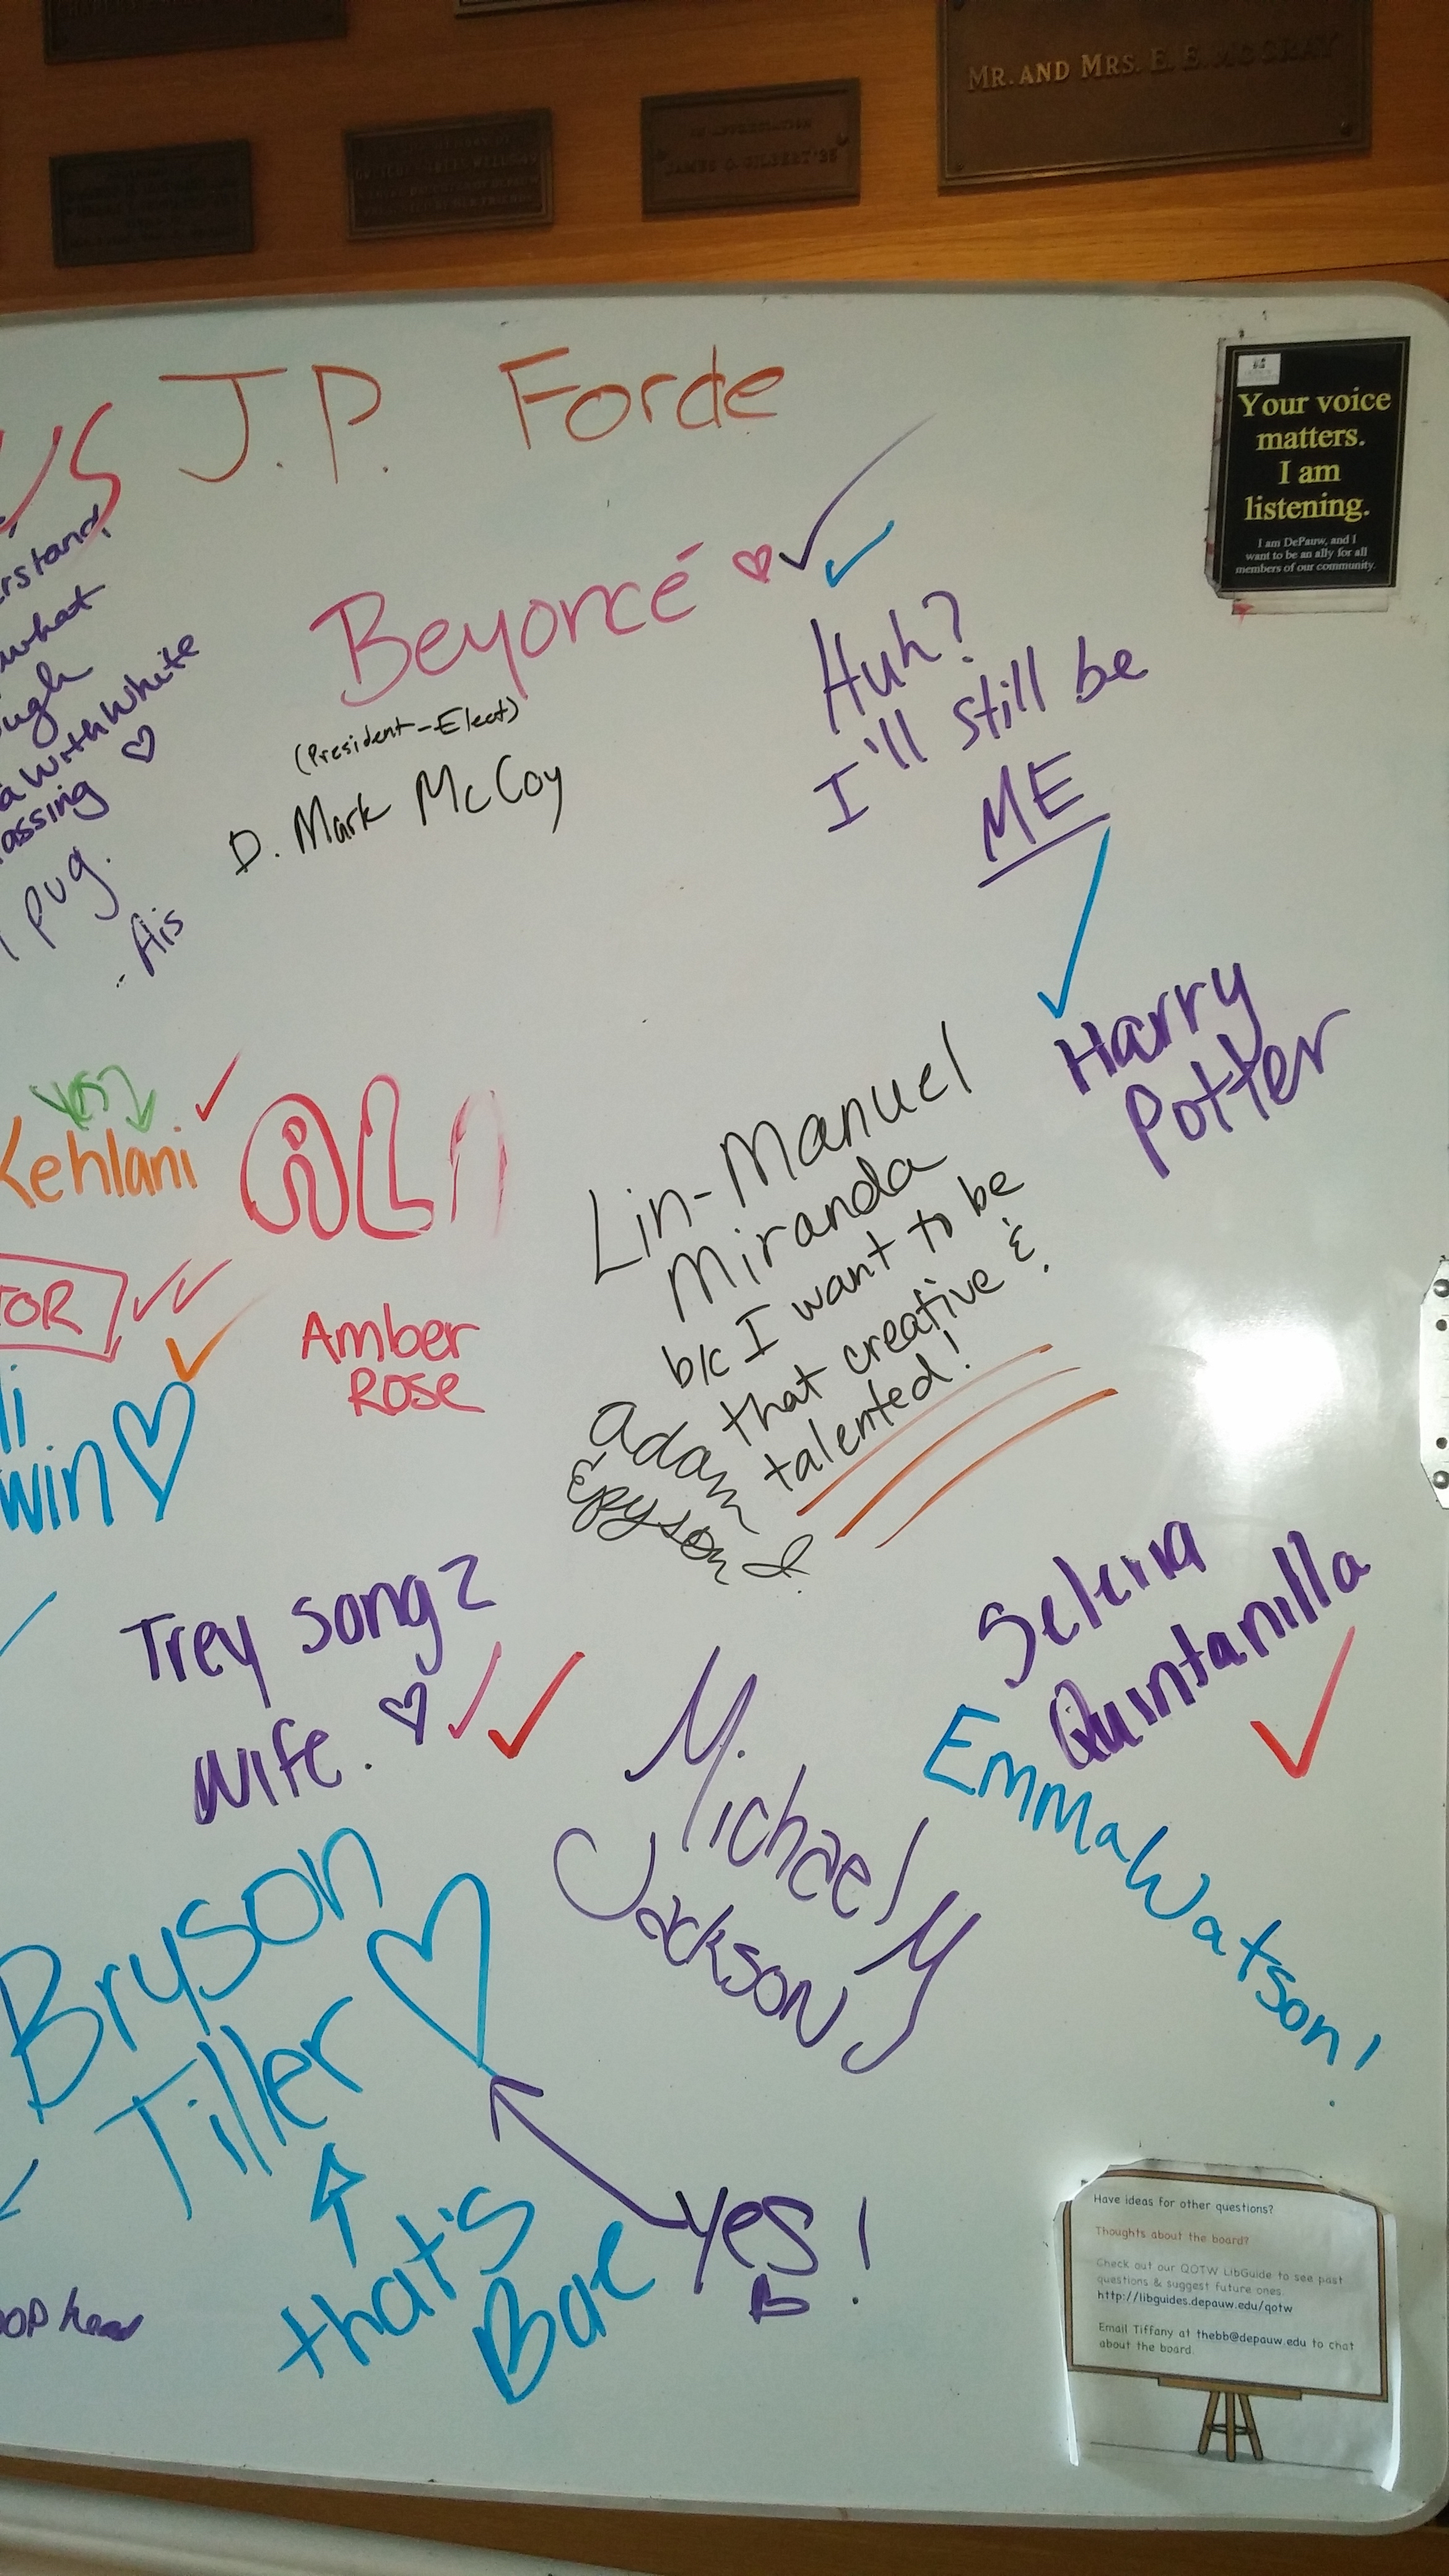 MR. AND MRS. E. E. MCCRAY
IN APPRECIATION
JAMES O. GILBERT '25
J.P. Forde
Your voice
matters.
I am
listening.
I am DePauw, and I
want to be an ally for all
members of our community.
Beyoncé
Huh?
I'll still be
ME
(President-Elect)
D. Mark McCoy
what
with white
pug.
- Ais
Harry
Potter
Yes
Kehlani
ALI
Lin-Manuel
Miranda
b/c I want to be
that creative &
talented!
Amber
Rose
Adam
Trey Songz
wife.
Selena
Quintanilla
Michael
Jackson
Emma Watson!
Bryson
Tiller
that's
Bae
yes!
Have ideas for other questions?
Thoughts about the board?
Check out our QOTW LibGuide to see past
questions & suggest future ones.
http://libguides.depauw.edu/qotw
Email Tiffany at thebb@depauw.edu to chat
about the board.